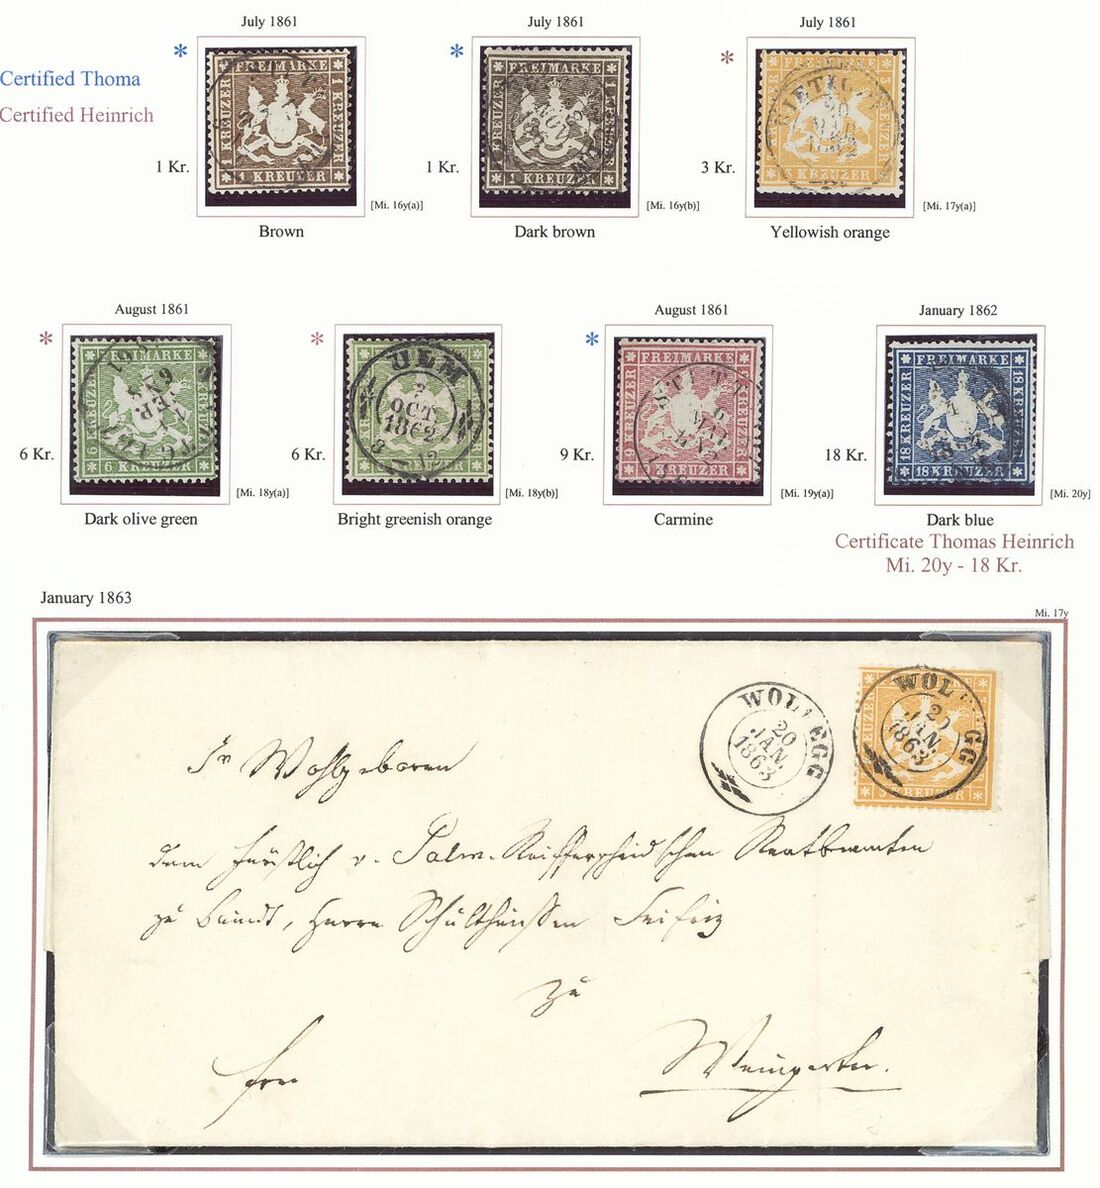 July 1861
July 1861
July 1861
*
*
*
Certified Thoma
Certified Heinrich
FREIMARKE
1 KREUZER
1 KREUZER
1 KREUZER
FREIMARKE
1 KREUZER
1 KREUZER
1 KREUZER
FREIMARKE
3 KREUZER
1 Kr.
1 Kr.
3 Kr.
[Mi. 16y(a)]
[Mi. 16y(b)]
[Mi. 17y(a)]
Brown
Dark brown
Yellowish orange
August 1861
August 1861
January 1862
*
*
*
FREIMARKE
6 KREUZER
6 KREUZER
ULM
2
OCT
1862
6 KREUZER
FREIMARKE
9 KREUZER
9 KREUZER
STUTT
6
MAI
FREIMARKE
18 KREUZER
18 KREUZER
18 KREUZER
6 Kr.
6 Kr.
9 Kr.
18 Kr.
[Mi. 18y(a)]
[Mi. 18y(b)]
[Mi. 19y(a)]
[Mi. 20y]
Dark olive green
Bright greenish orange
Carmine
Dark blue
Certificate Thomas Heinrich
Mi. 20y - 18 Kr.
January 1863
Mi. 17y
WOLFEGG
20
JAN.
1863
WOLFEGG
20
JAN.
1863
KREUZER
Sr Wohlgeboren
dem fürstlich v. Salm-Reifferscheid'schen Rentbeamten
zu Baindt, Herrn Schultheißen
zu
frei
Weingarten.